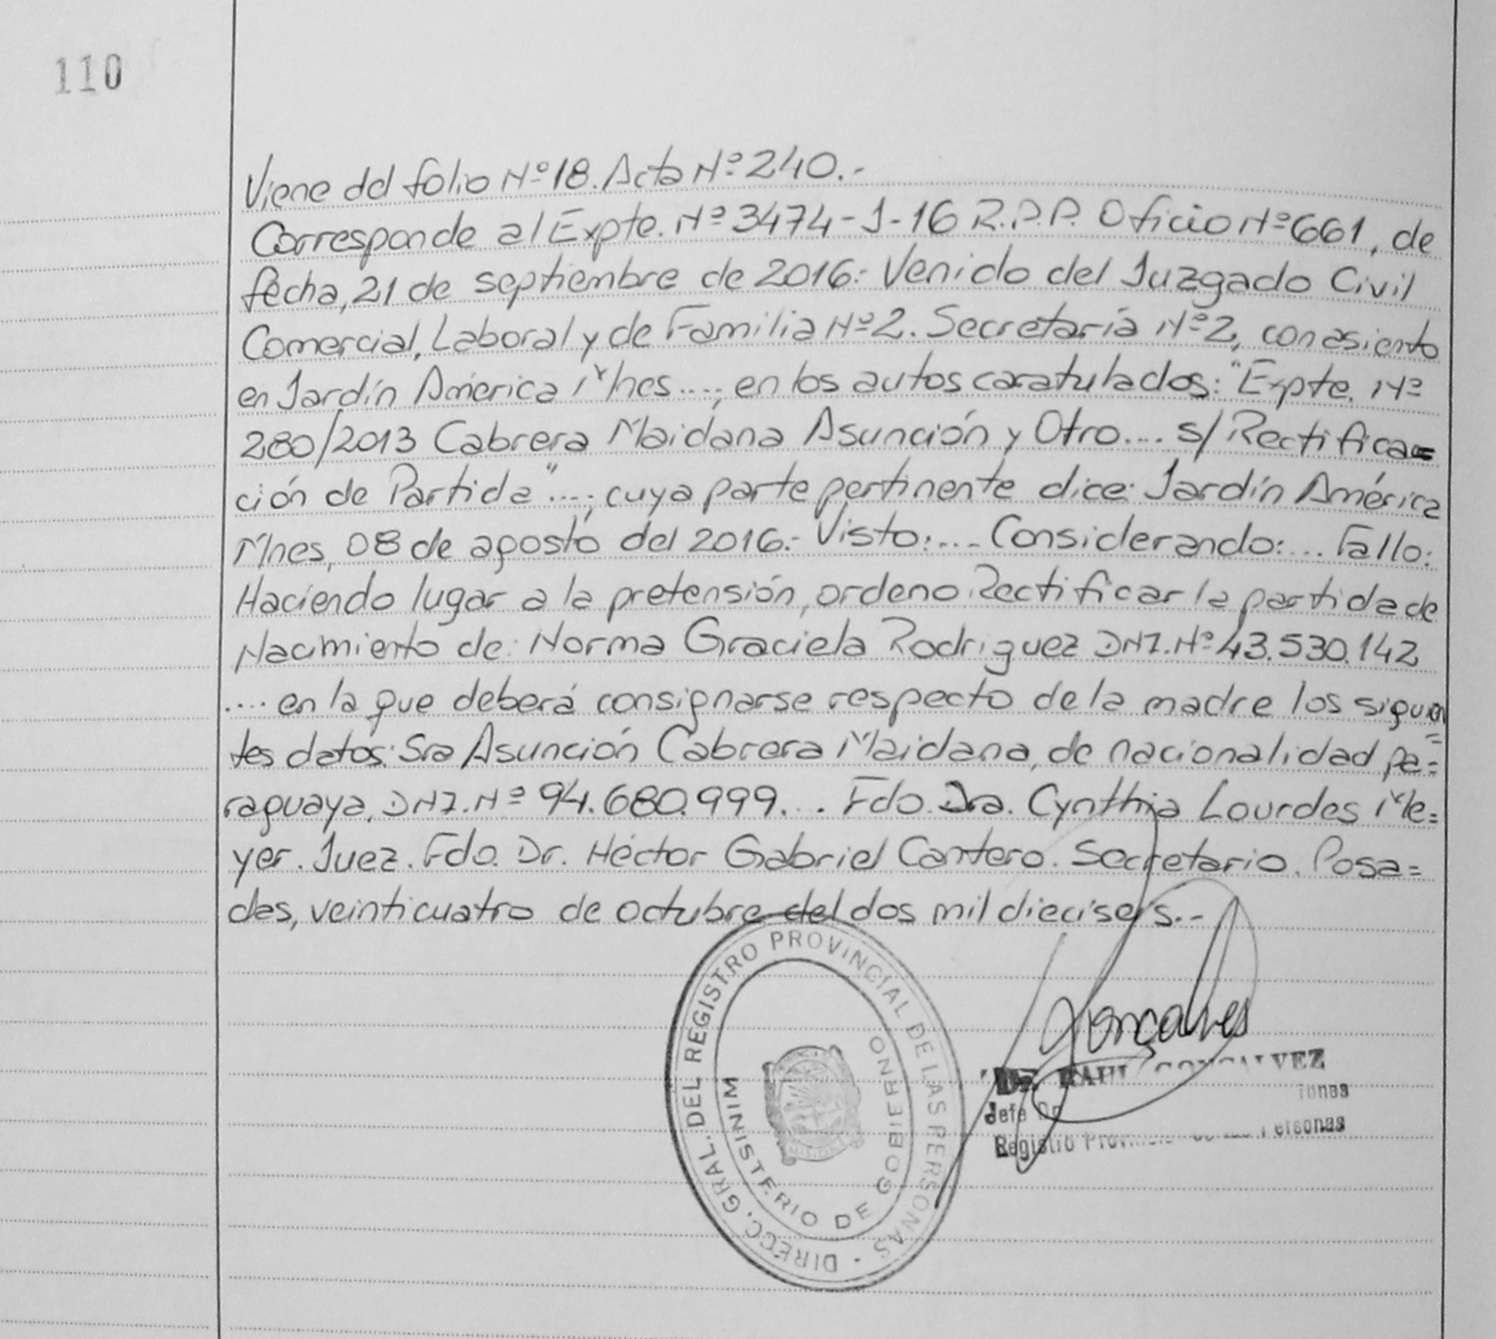 110
Viene del folio Nº 18. Acta Nº 240.-
Corresponde al Expte. Nº 3474-J-16 R.P.P. Oficio Nº 661, de
fecha, 21 de septiembre de 2016: Venido del Juzgado Civil
Comercial, Laboral y de Familia Nº 2. Secretaría Nº 2, con asiento
en Jardín América Mnes...., en los autos caratulados: "Expte. Nº
280/2013 Cabrera Maidana Asunción y Otro.... s/ Rectifica=
ción de Partida"....; cuya parte pertinente dice: Jardín América
Mnes, 08 de agosto del 2016.- Visto:.... Considerando:... Fallo:
Haciendo lugar a la pretensión, ordeno Rectificar la partida de
Nacimiento de: Norma Graciela Rodriguez DNI. Nº 43.530.142
.... en la que deberá consignarse respecto de la madre los siguien
=
tes datos: Sra Asunción Cabrera Maidana, de nacionalidad pa=
raguaya, DNI. Nº 94.680.999... Fdo. Dra. Cynthia Lourdes Me=
yer. Juez. Fdo. Dr. Héctor Gabriel Cantero. Secretario. Posa=
das, veinticuatro de octubre del dos mil dieciseis.-
DIRECC. GRAL. DEL REGISTRO PROVINCIAL DE LAS PERSONAS
MINISTERIO DE GOBIERNO
Gonçalves
Dr. RAUL GONCALVEZ
Jefe
Registro Personas